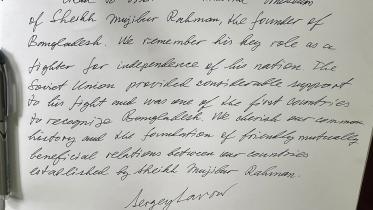 of Sheikh Mujibur Rahman, the founder of
Bangladesh. We remember his key role as a
fighter for independence of his nation. The
Soviet Union provided considerable support
to his fight and was one of the first countries
to recognize Bangladesh. We cherish our common
history and the foundation of friendly mutually
beneficial relations between our countries
established by Sheikh Mujibur Rahman.
Sergey Lavrov